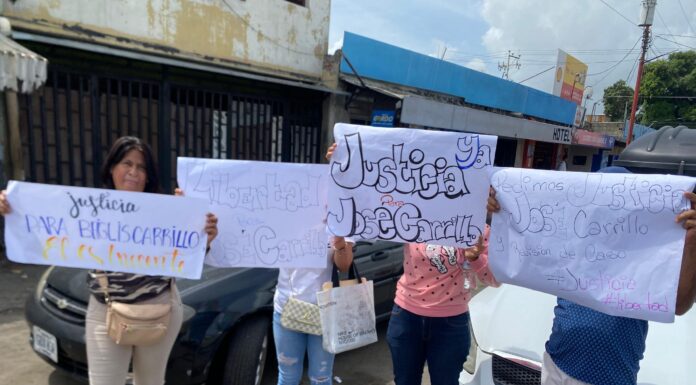 justicia
PARA BIGLISCARRILLO
El es Inocente
Libertad
para
José Carrillo
Justicia ya
Para
José Carrillo.
pedimos Justicia
José Carrillo
y Revisión de Caso
+Justicia
#libertad
HOTEL